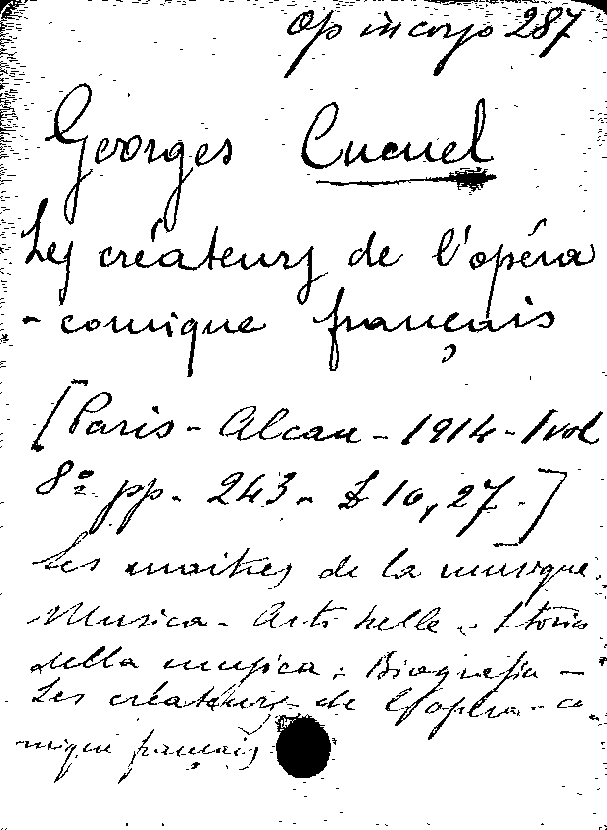 Op in corso 287
Georges Cucuel
Les créateurs de l'opéra
-comique français
[Paris - Alcan - 1914 - 1 vol
8º pp. 243 - £ 10,27.]
Les maitres de la musique.
Musica - Arti belle - Storia
della musica: Biografia -
Les créateurs de l'opéra-co-
mique français